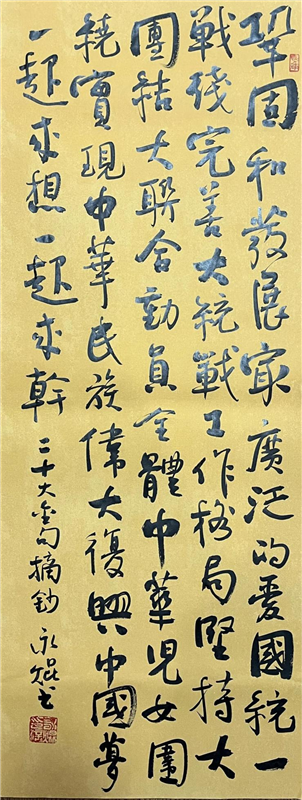 鞏固和發展冣廣泛的愛國統一
戰线完善大統戰工作格局堅持大
團结大聯合動員全體中華兒女圍
繞實現中華民族偉大復興中國夢
一起來想一起來幹 二十大金句摘鈔 永焜书